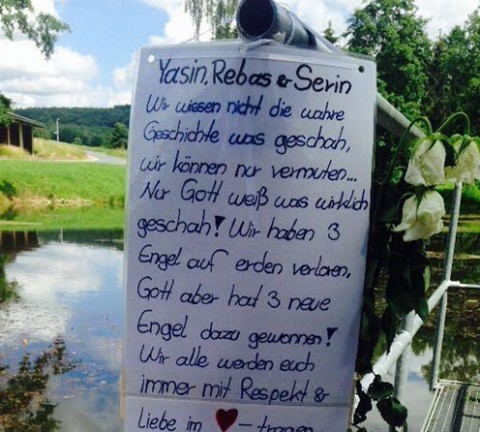 Yasin, Rebas & Serin
Wir wiesen nicht die wahre
Geschichte was geschah,
wir können nur vermuten...
Nur Gott weiß was wirklich
geschah! Wir haben 3
Engel auf erden verloren,
Gott aber hat 3 neue
Engel dazu gewonnen!
Wir alle werden euch
immer mit Respekt &
Liebe im ♥ - tragen